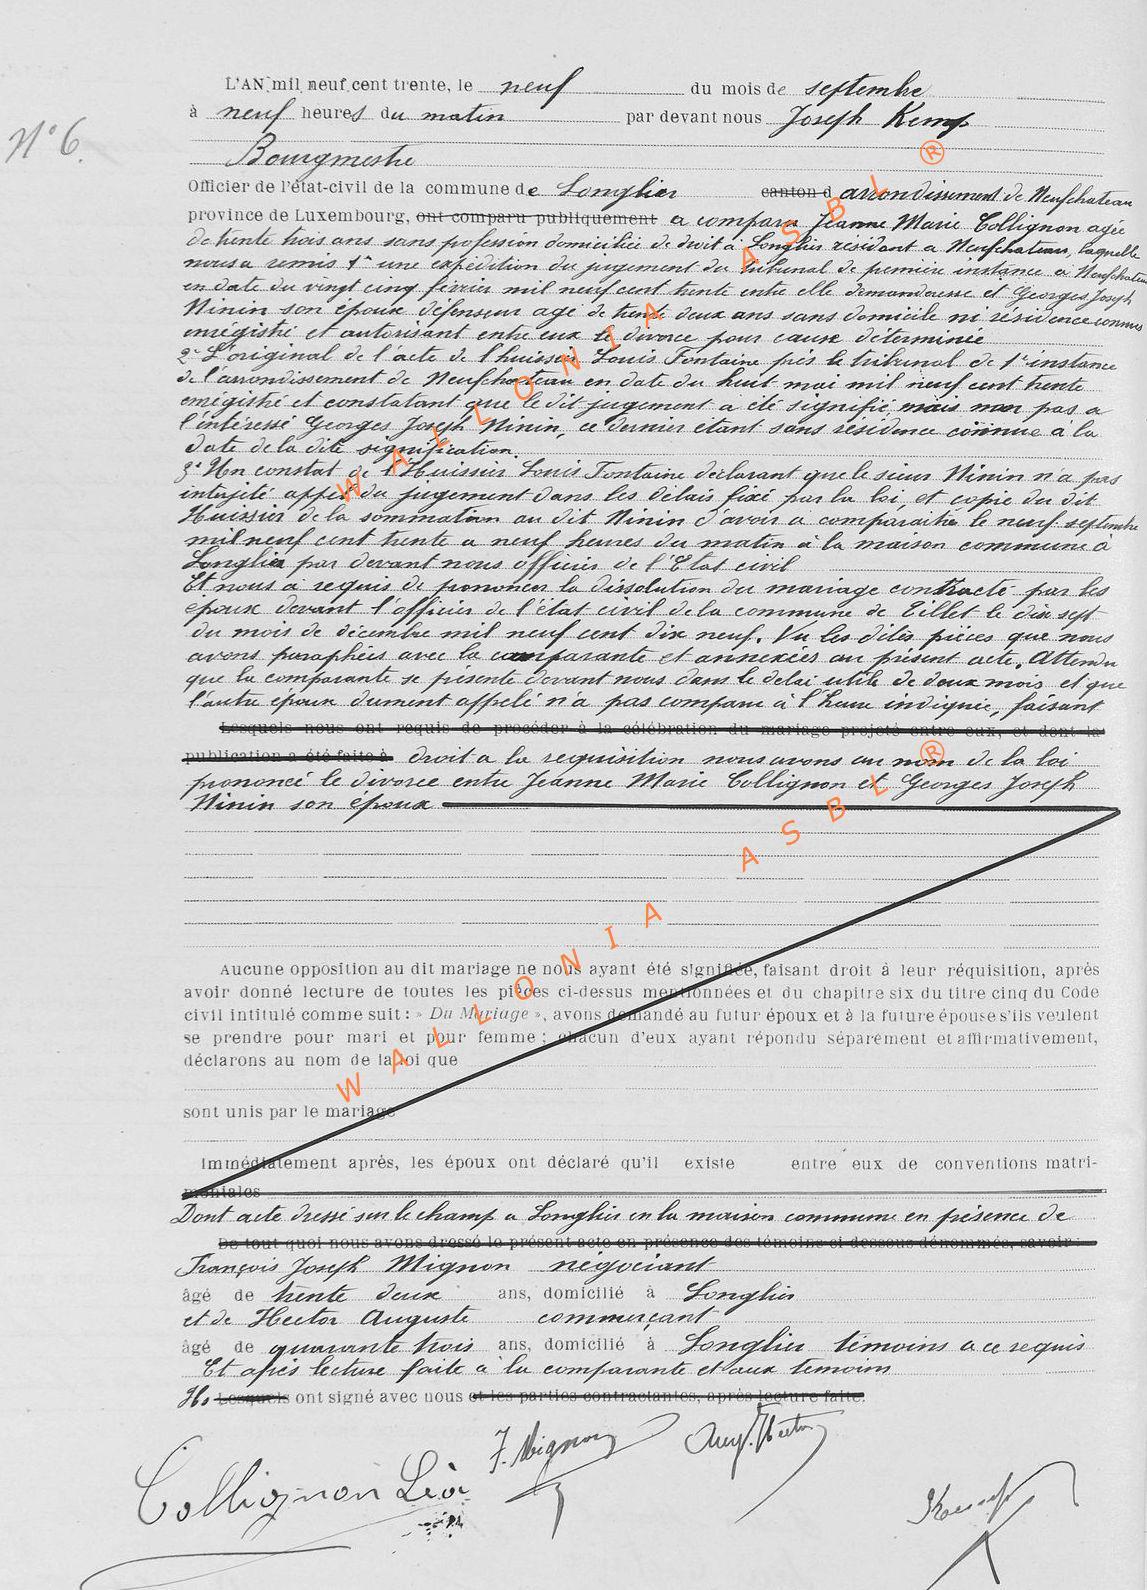 N° 6.
L'AN mil neuf cent trente, le neuf du mois de septembre
à neuf heures du matin par devant nous Joseph Kemp
Bourgmestre
Officier de l'état-civil de la commune de Longlier canton d arrondissement de Neufchateau
province de Luxembourg, ont comparu publiquement a comparu Jeanne Marie Collignon agée
de trente trois ans sans profession domiciliée de droit à Longlier résidant a Neufchateau, laquelle
nous a remis 1° une expédition du jugement du tribunal de première instance à Neufchateau
en date du vingt cinq février mil neuf cent trente entre elle demanderesse et Georges Joseph
Ninin son époux défenseur agé de trente deux ans sans domicile ni résidence connus
enrégistré et autorisant entre eux le divorce pour cause déterminée
2° L'original de l'acte de l'huissier Louis Fontaine près le tribunal de 1re instance
de l'arrondissement de Neufchateau en date du huit mai mil neuf cent trente
enregistré et constatant que le dit jugement a été signifié, mais non pas a
l'intéressé Georges Joseph Ninin, ce dernier étant sans résidence connue à la
date de la dite signification.
3° Un constat de l'Huissier Louis Fontaine déclarant que le sieur Ninin n'a pas
interjeté appel du jugement dans les délais fixé par la loi, et copie du dit
Huissier de la sommation au dit Ninin d'avoir a comparaitre le neuf septembre
mil neuf cent trente a neuf heures du matin à la maison commune à
Longlier par devant nous officier de l'Etat civil
Et nous a requis de prononcer la dissolution du mariage contracté par les
époux devant l'officier de l'état civil de la commune de Tillet le dix sept
du mois de décembre mil neuf cent dix neuf. Vu les dites pièces que nous
avons paraphées avec la comparante et annexées au présent acte. Attendu
que la comparante se présente devant nous dans le délai utile de deux mois et que
l'autre époux dument appelé n'a pas comparu à l'heure indiquée, faisant
Lesquels nous ont requis de procéder à la célébration du mariage projeté entre eux, et dont la
publication a été faite à droit a la requisition nous avons au nom de la loi
prononcé le divorce entre Jeanne Marie Collignon et Georges Joseph
Ninin son époux
Aucune opposition au dit mariage ne nous ayant été signifiée, faisant droit à leur réquisition, après
avoir donné lecture de toutes les pièces ci-dessus mentionnées et du chapitre six du titre cinq du Code
civil intitulé comme suit : « Du Mariage », avons demandé au futur époux et à la future épouse s'ils veulent
se prendre pour mari et pour femme ; chacun d'eux ayant répondu séparement et affirmativement,
déclarons au nom de la loi que
sont unis par le mariage
Immédiatement après, les époux ont déclaré qu'il existe entre eux de conventions matri-
moniales
Dont acte dressé sur le champ a Longlier en la maison commune en présence de
De tout quoi nous avons dressé le présent acte en présence des témoins ci dessous dénommés, savoir :
François Joseph Mignon négociant
âgé de trente deux ans, domicilié à Longlier
et de Hector Auguste commerçant
âgé de quarante trois ans, domicilié à Longlier témoins a ce requis
Et après lecture faite à la comparante et aux témoins
Ils Lesquels ont signé avec nous et les parties contractantes, après lecture faite.
F. Mignon
Aug. Hector
Collignon Léa
WALLONIA ASBL ®
WALLONIA ASBL ®